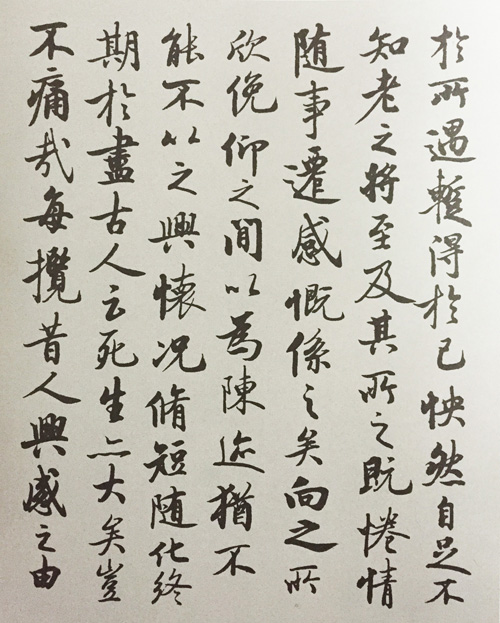 於所遇暫得於己怏然自足不
知老之將至及其所之既惓情
随事遷感慨係之矣向之所
欣俛仰之閒以為陳迹猶不
能不以之興懷况脩短随化終
期於盡古人云死生亦大矣豈
不痛哉每攬昔人興感之由